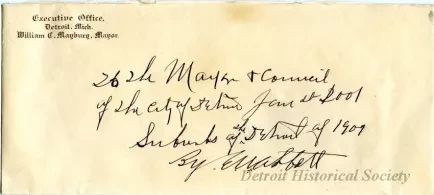 Executive Office.
Detroit, Mich.
William C. Maybury, Mayor.
To the Mayor & Council
of the City of Detroit Jan 1st 2001
Suburbs of the Detroit of 1900
By
Detroit Historical Society